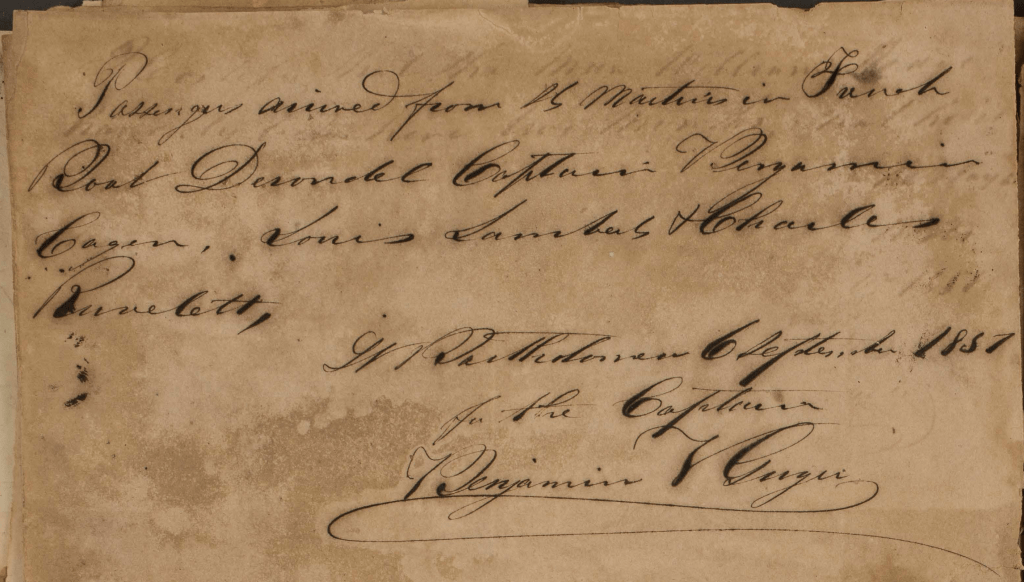 Passengers arrived from St Martins in French
Boat Derondel Captain Benjamin
Cagen, Louis Lambert & Charles
St Bartholomew 6 September 1837
for the Captain
Benjamin